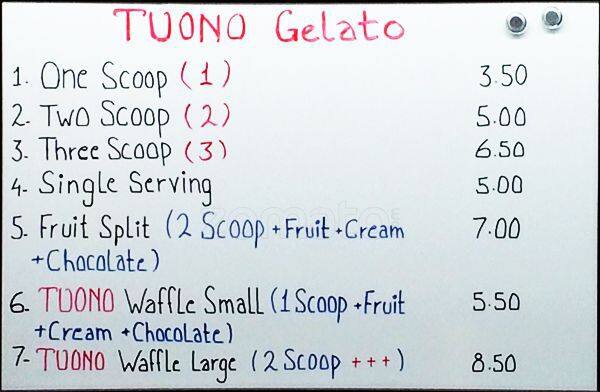 TUONO Gelato
1. One Scoop (1) 3.50
2. Two Scoop (2) 5.00
3. Three Scoop (3) 6.50
4. Single Serving 5.00
5. Fruit Split (2 Scoop + Fruit + Cream 7.00
+ Chocolate)
6. TUONO Waffle Small (1 Scoop + Fruit 5.50
+ Cream + Chocolate)
7- TUONO Waffle Large (2 Scoop + + +) 8.50
zomato